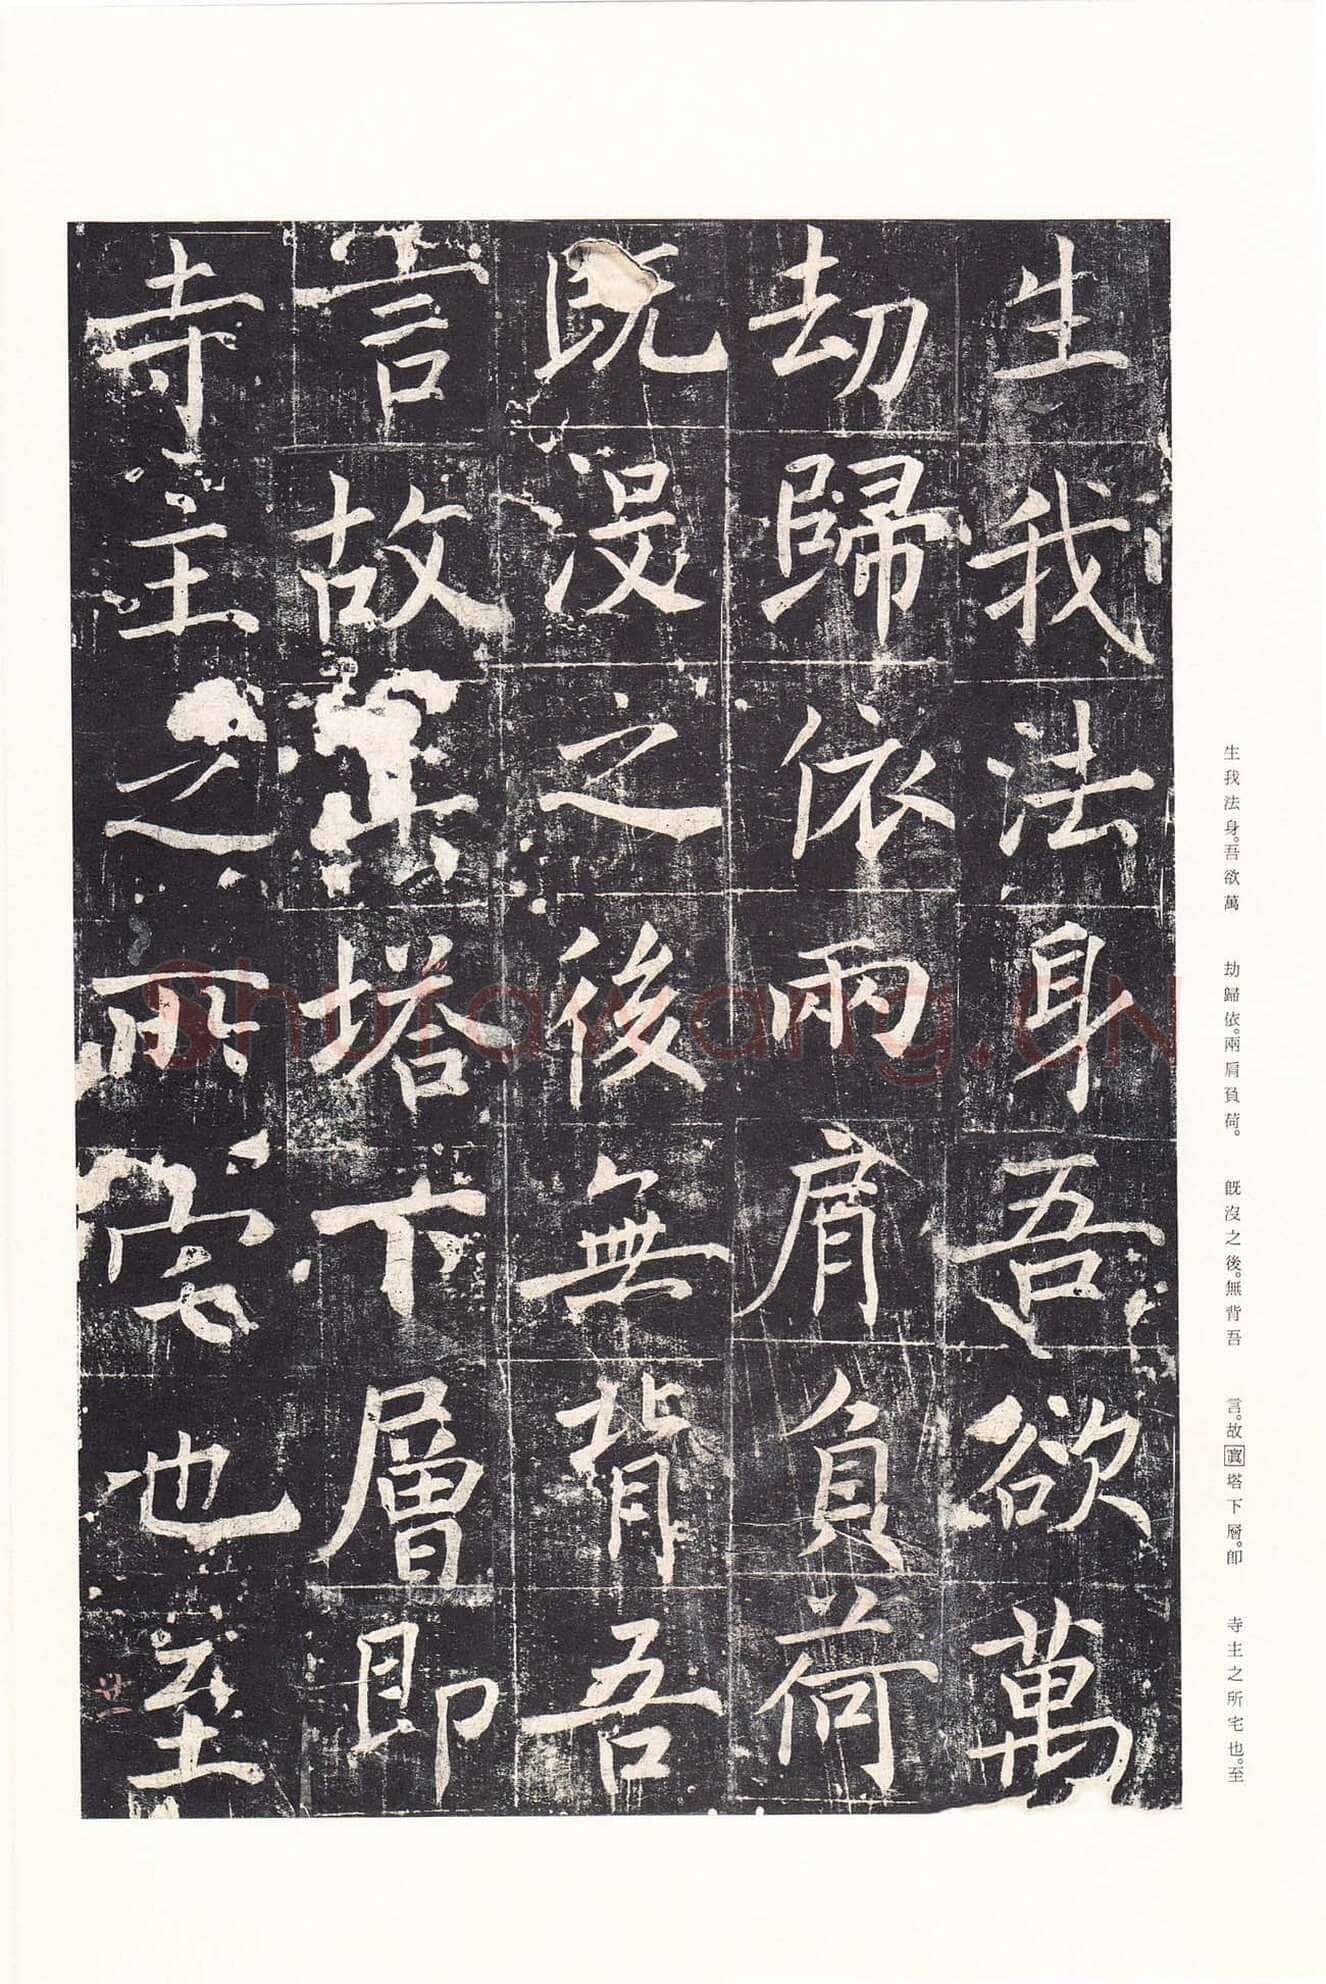 生我法身吾欲萬
劫歸依兩肩負荷
既没之後無背吾
言故寘塔下層即
寺主之所宅也至
生我法身。吾欲萬
劫歸依。兩肩負荷。
既沒之後。無背吾
言。故寘塔下層。卽
寺主之所宅也。至
shufawang.cn